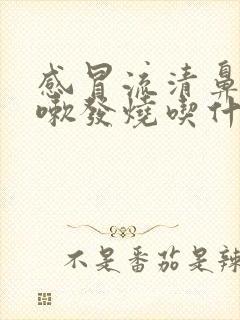 感冒流清鼻
嗽發燒喫什
不是番茄是辣